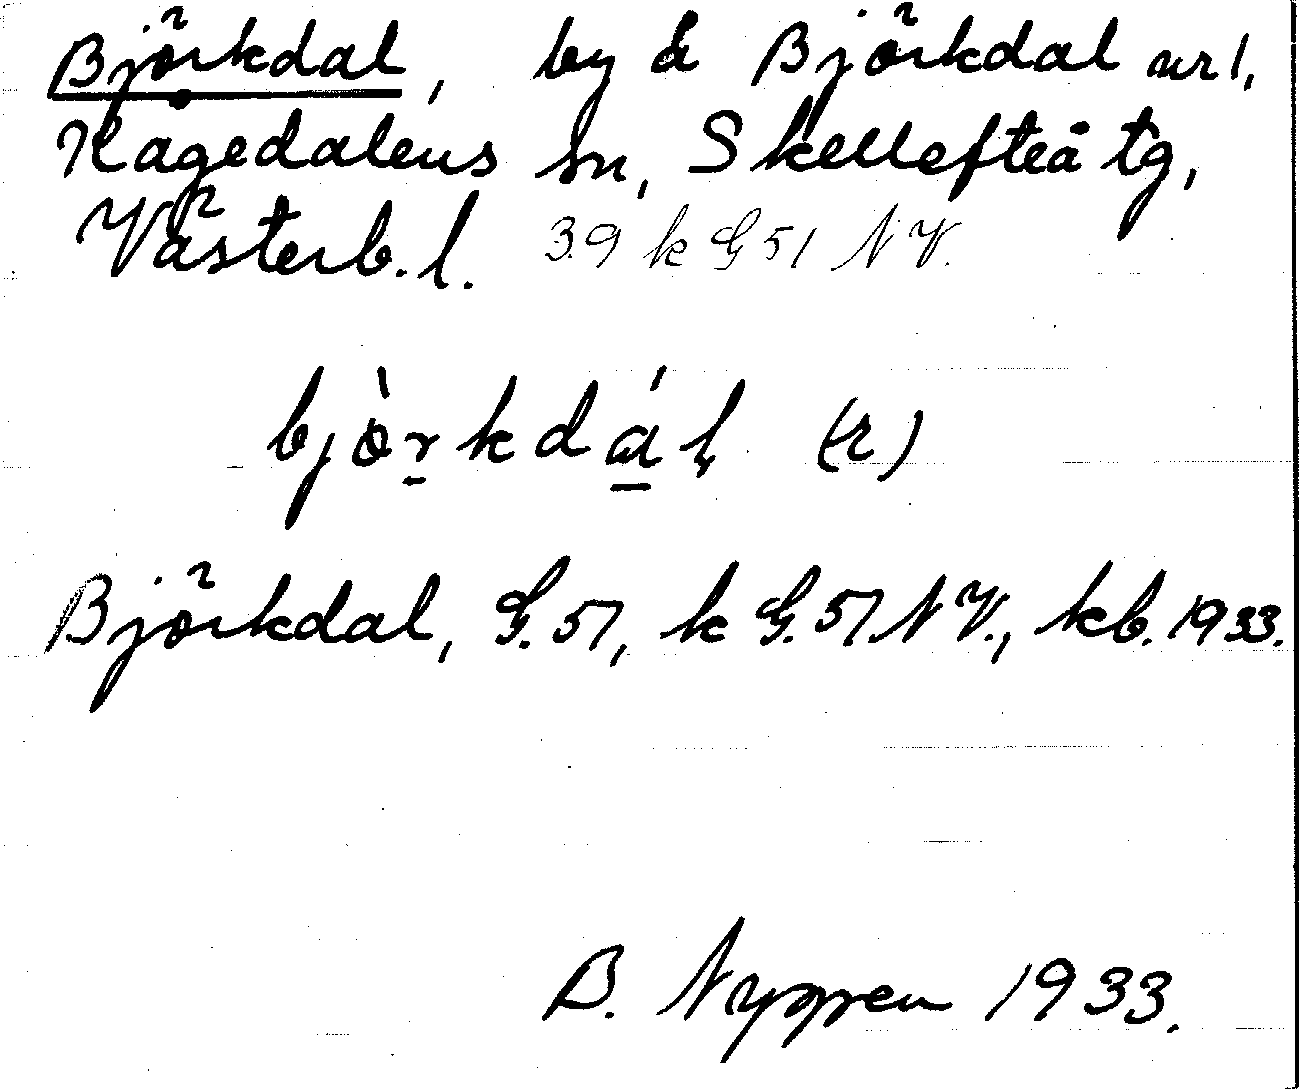 Björkdal, by å Björkdal url,
Kågedalens sn, Skellefteå tg,
Västerb. l. 39 k G 51 NV.
bjòrkdál (r)
Björkdal, G. 51, k G. 51 NV., kb. 1933.
B. Nygren 1933.